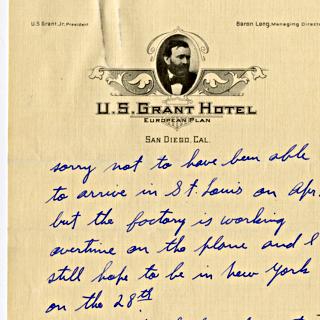 U.S. Grant, Jr. President
Baron Long, Managing Direct
U.S. GRANT HOTEL
EUROPEAN PLAN
SAN DIEGO, CAL.
sorry not to have been able
to arrive in St. Louis on Apr.
but the factory is working
overtime on the plane and I
still hope to be in New York
on the 28th